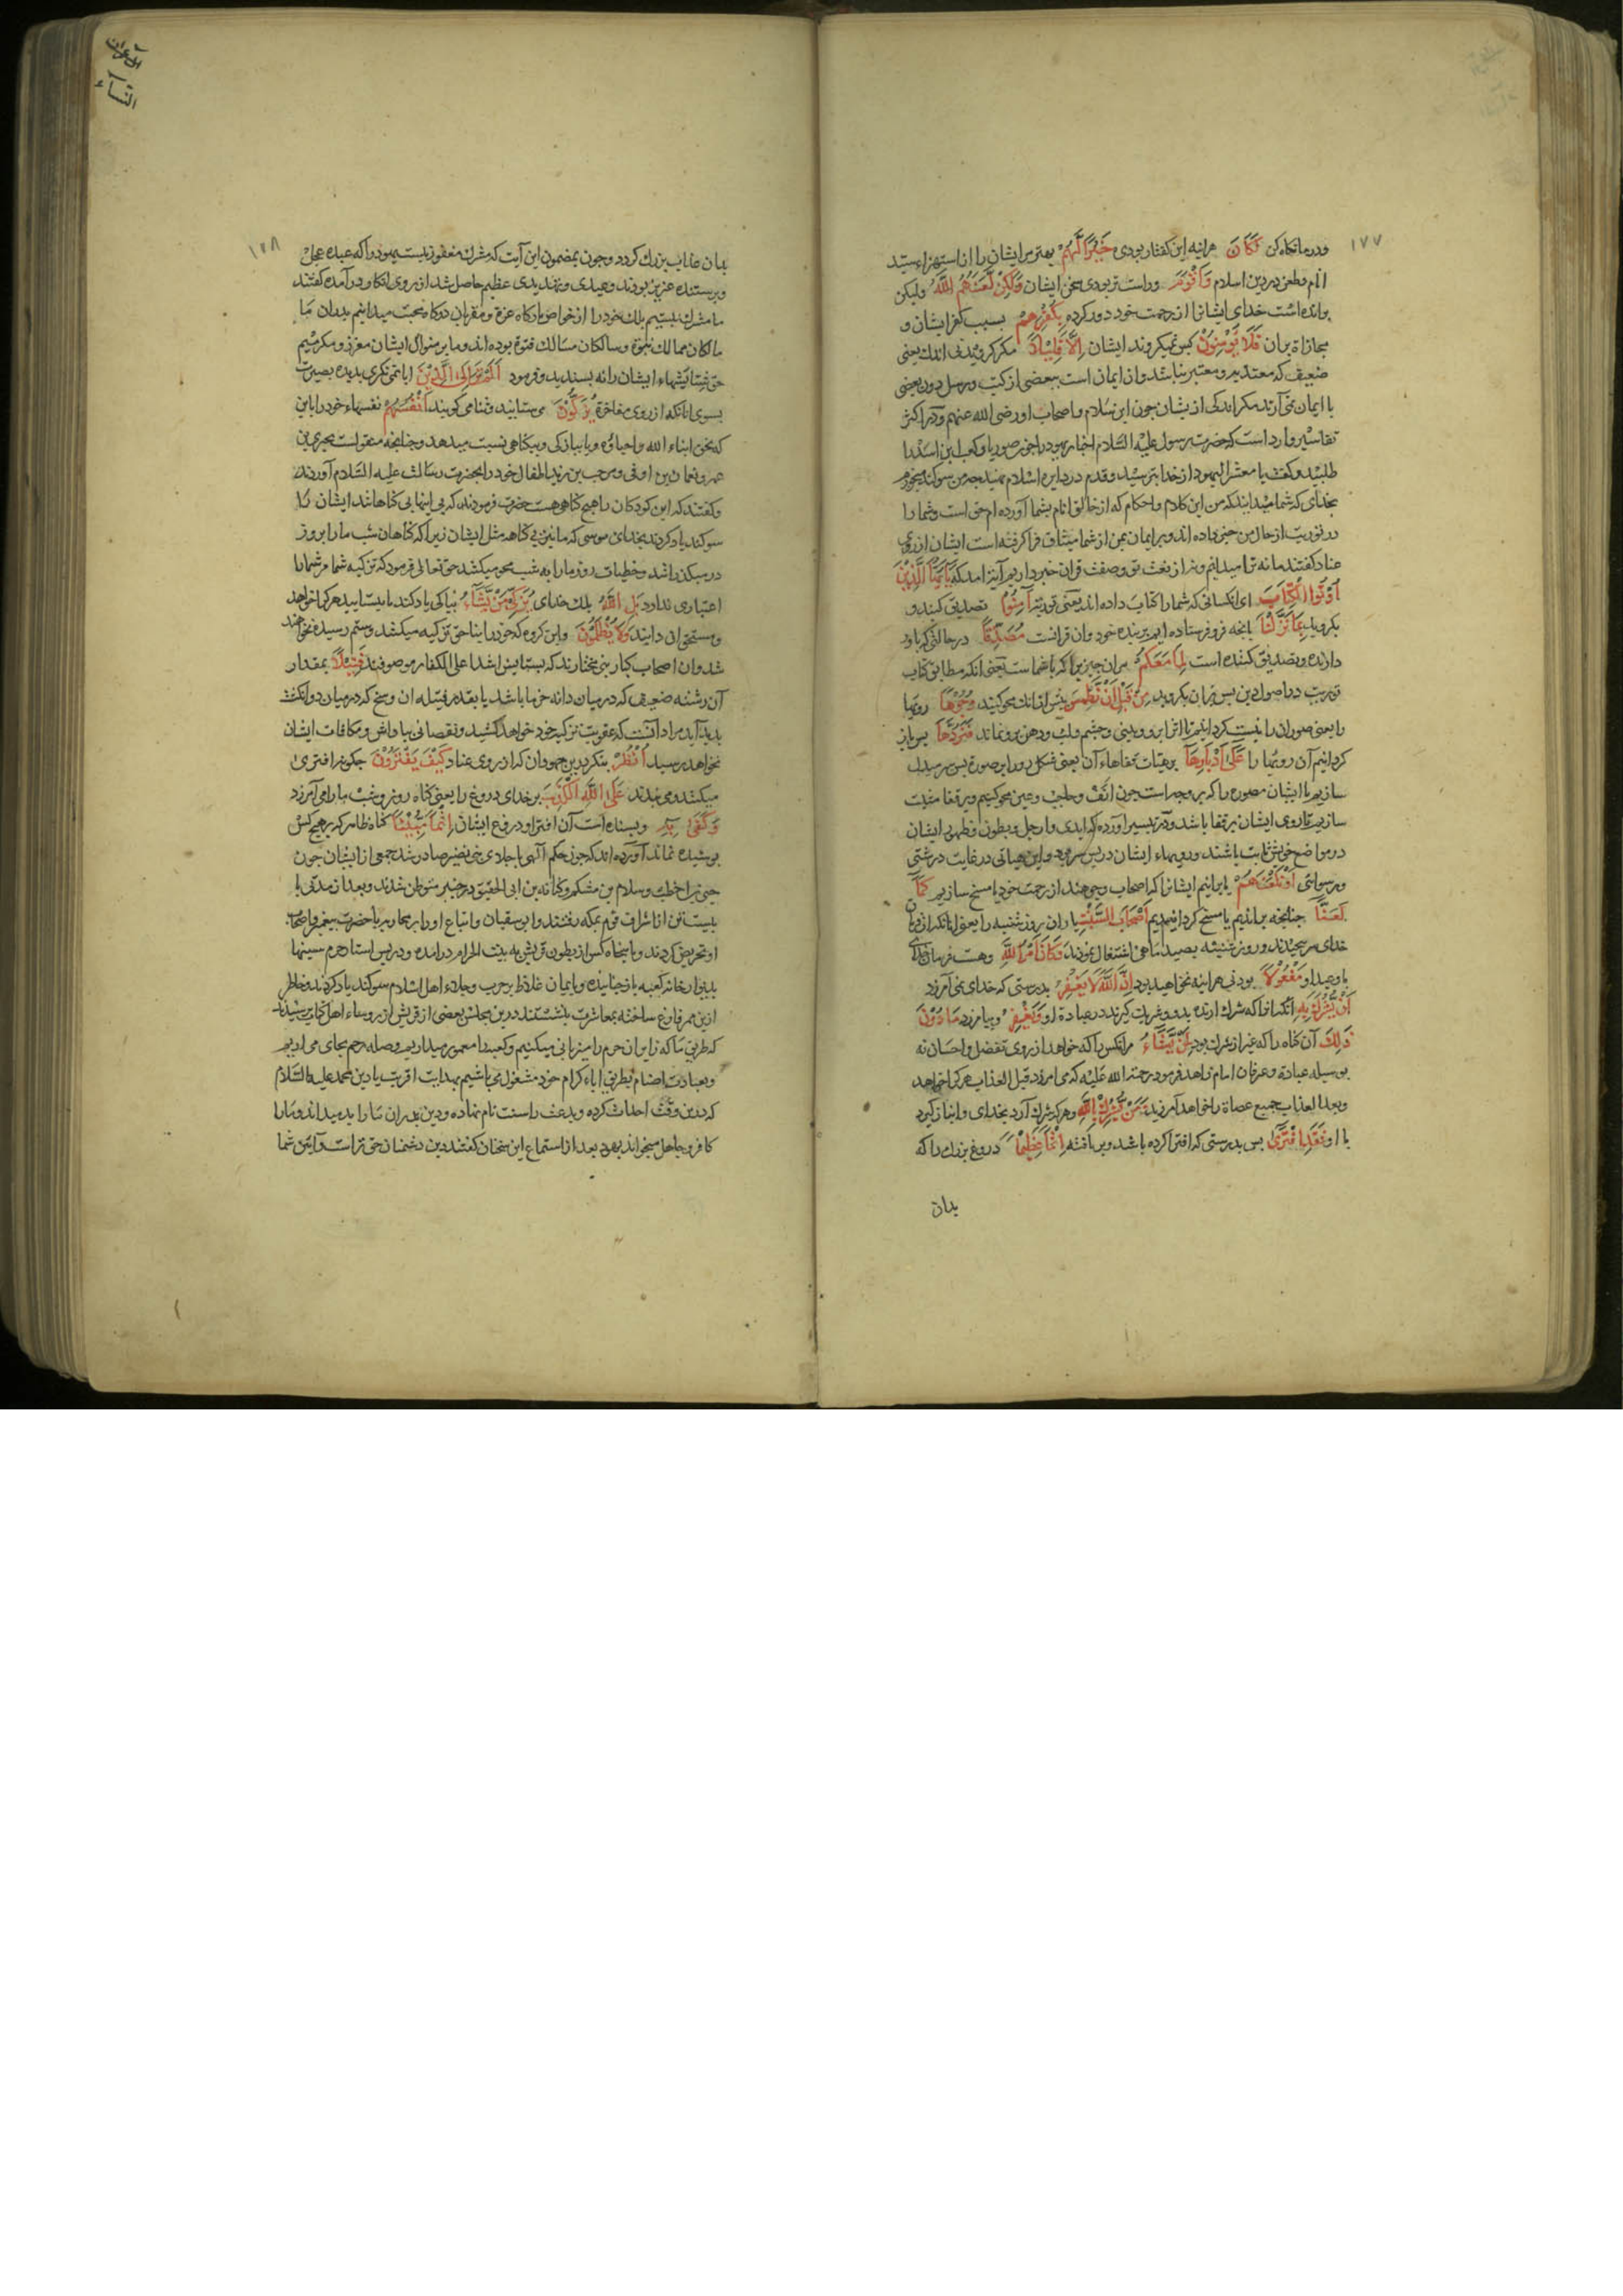 ۱۷۷
ودر ما نکاه کن لَكَانَ هراینه این کفتار بودی خَيْرًا لَّهُمْ بهتر مر ایشان را از استهزاء سید
انام وطعن در دین اسلام وَأَقْوَمَ وراست تر بودی سخن ایشان وَلَٰكِن لَّعَنَهُمُ اللَّهُ ولیکن
برانده است خدای ایشانرا از رحمت خود دور کرده بِكُفْرِهِمْ بسبب کفر ایشان و
مجازاة بران فَلَا يُؤْمِنُونَ پس نمیکروند ایشان إِلَّا قَلِيلًا مکر کرویدنی اندك یعنی
ضعیف که معتد به ومعتبر نباشد وان ایمان است ببعضی از کتب ورسل دون بعضی
یا ایمان نمی آرند مکر اندکی از یشان چون ابن سلام واصحاب او رضی الله عنهم ودر اکثر
تفاسیر وارد است که حضرت رسول علیه السلام احبار یهود را چون صوریا وکعب ابن اسد را
طلبید وکفت یا معشر الیهود از خدا بترسید وقدم در دایره اسلام نهید که من سوکند میخورم
بخدای که شما میدانید که من این کلام واحکام که از خالق انام بشما آورده ام حق است وشما را
در توریت از حال من خبر داده اند وبر ایمان بمن از شما میثاق فرا کرفته است ایشان از روی
عناد کفتند ما نه ترا میدانیم ونه از بعث تو وصفت قران خبر داریم آیة امد که يَا أَيُّهَا الَّذِينَ
أُوتُوا الْكِتَابَ ای انکسانی که شما را کتاب داده اند یعنی توریة آمِنُوا تصدیق کنید و
بکروید بِمَا نَزَّلْنَا بانچه فرو فرستاده ایم بر بنده خود وان قرانست مُصَدِّقًا در حالتی که باور
دارنده وتصدیق کننده است لِّمَا مَعَكُم مران چیزیرا که با شماست یعنی انکه مطابق کتاب
توریت در اصول دین پس بران بکروید مِّن قَبْلِ أَن نَّطْمِسَ پیش از انکه محو کنیم وُجُوهًا رویها
را یعنی صوران را نیست کردانیم تا اثر ابرو وبینی وچشم ولب ودهن برو نماند فَنَرُدَّهَا پس باز
کردانیم آن رویها را عَلَىٰ أَدْبَارِهَا بر هیئات قفاهاء آن یعنی شکل رو را بر صورة پس سر مبدل
سازیم یا ایشان مصوره را که بر وجه است چون انف وحاجب وعین محو کنیم وبر قفا مثبت
سازیم تا روی ایشان بر قفا باشد ودر تیسیر آورده که ایدی وارجل وبطون وظهور ایشان
در مواضع خویش ثابت باشند ورویهاء ایشان در پس سر بود واین هیاتی در غایت درشتی
ورسوائی أَوْ نَلْعَنَهُمْ یا برانیم ایشانرا که اصحاب وجوهند از رحمت خود یا مسخ سازیم كَمَا
لَعَنَّا چنانچه براندیم یا مسخ کردانیدیم أَصْحَابَ السَّبْتِ یاران روز شنبه را یعنی انانکه از فرمان
خدای سر پیچیدند وروز شنبه بصید ماهی اشتغال نمودند وَكَانَ أَمْرُ اللَّهِ وهست فرمان خدای
یا وعید او مَفْعُولًا بودنی هراینه نخواهید بود إِنَّ اللَّهَ لَا يَغْفِرُ بدرستی که خدای نمی آمرزد
أَن يُشْرَكَ بِهِ انکسانرا که شرك ارند بدو وشریك کیرند در عبادة او وَيَغْفِرُ وبیامرزد مَا دُونَ
ذَٰلِكَ آن کناه را که غیر از شرك بود لِمَن يَشَاءُ مرانکس را که خواهد از روی تفضل واحسان نه
بوسیله عبادة وعرفان امام زاهد فرمود رحمة الله علیه که می امرزد قبل العذاب هرکرا خواهد
وبعد العذاب جمیع عصاة را خواهد آمرزید وَمَن يُشْرِكْ بِاللَّهِ وهرکه شرك آرد بخدای وانباز کیرد
با او فَقَدِ افْتَرَىٰ پس بدرستی که افترا کرده باشد وبر بافته إِثْمًا عَظِيمًا دروغ بزرك را که
بدان
آل عمران
النسآء
۱۷۸
بدان عذاب بزرك کردد وچون بمضمون این آیت که مشرك مغفور نیست یهود را که عبده عجل
وپرستنده عزیر بودند وعیدی وتهدیدی عظیم حاصل شد از روی انکار در آمده کفتند
ما مشرك نیستیم بلك خود را از خواص بارکاه عزة ومقربان درکاه محبت میدانیم پدران ما
مالکان ممالك نبوة وسالکان مسالك فتوة بوده اند وما بر منوال ایشان معزز ومکرمیم
حق ستایشهاء ایشان را نه پسندید وفرمود أَلَمْ تَرَ إِلَى الَّذِينَ ایا نمی نکری بدیده بصیرت
بسوی انانکه از روی مفاخرة يُزَكُّونَ می ستایند وثنا می کویند أَنفُسَهُم نفسهاء خود را باین
که نحن ابناء الله واحباؤه وبا بپاکی وبیکناهی نسبت میدهد وچنانچه منقولست بحری بن
عمرو ونعمان بن اوفی ومرحب بن زید اطفال خود را بحضرت رسالت علیه السلام آوردند
وکفتند که این کودکان را هیچ کناهی هست حضرت فرمودند که بی اینها بی کناهانند ایشان
سوکند یاد کردند بخدای موسی که ما نیز بی کناهیم مثل ایشان زیرا که کناهان شب ما را بروز
در میکذراند وخطیات روز ما را به شب محو میکند حق تعالی فرمود که تزکیه شما مر شما را
اعتباری ندارد بَلِ اللَّهُ بلك خدای يُزَكِّي مَن يَشَاءُ بپاکی یاد کند یا بستاید هرکرا خواهد
ومستحق ان دانند وَلَا يُظْلَمُونَ واین کروه که خود را بناحق تزکیه میکنند وستم رسیده نخواهند
شد وان اصحاب کبار بی نختارند که بستایش اشداء علی الکفار موصوفند فَتِيلًا بمقدار
آن رشته ضعیف که در میان دانه خرما باشد یا بقدر فتیله ان وسخ که در میان دو انکشت
پدید آید مراد آنست که عقوبت تزکیه خود خواهد کشید ونقصانی بپاداش ومکافات ایشان
نخواهد رسید انظُرْ بنکر بدین جهودان که از روی عناد كَيْفَ يَفْتَرُونَ چکونه افتری
میکنند ومی بندند عَلَى اللَّهِ الْكَذِبَ بر خدای دروغ را یعنی کناه روز وشب ما را می آمرزد
وَكَفَىٰ بِهِ وبسنده است آن افترا ودروغ ایشان إِثْمًا مُّبِينًا کناه ظاهر که بر هیچ کس
پوشیده نماند آورده اند که چون حکم الهی باجلای بنی نضیر صادر شد جمعی از ایشان چون
حیی بن اخطب وسلام بن مشکم وکنانه بن ابی الحقیق در خیبر متوطن شدند وبعد از مدتی با
بیست تن از اشراف قوم بمکه رفتند وابو سفیان واتباع او را بر محاربه با حضرت پیغمبر واصحاب
او تحریض کردند وبا پنجاه کس از بطون قریش به بیت الحرام در امده ودر پس استار حرم سینها
بدیوار خانه کعبه باز چنانیده وبایمان غلاظ بر حرب وجلاء اهل اسلام سوکند یاد کردند وخاطر
ازین ممر فارغ ساخته بمعاشرت بنشستند درین مجلس بعضی از قریش از روساء اهل کتاب پرسیدند
که طریق ما که زایران حرم را میزبانی میکنیم وکعبه را معمور میداریم وصله رحم بجای می اریم
وبعبادت اصنام بطریق اباء کرام خود مشغول می باشیم بهدایت اقربت یا دین محمد علیه السلام
که درین وقت احداث کرده وبدعت را سنت نام نهاده ودین پدران ما را بد میداند وما را
کافر وجاهل میخواند یهود بعد از استماع این سخنان کفتند دین دشمنان حق تر است وآئین شما